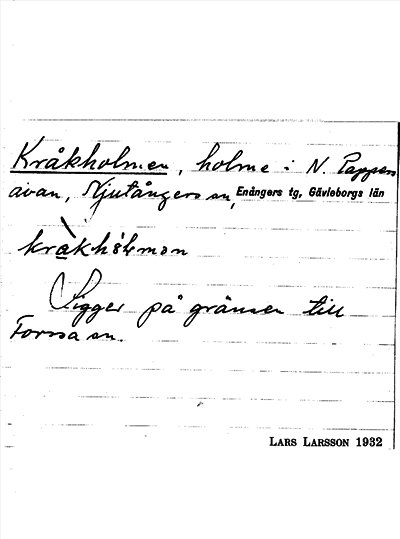 Kråkholmen, holme i N. Tappers
avan, Njutångers sn, Enångers tg, Gävleborgs län
Ligger på gränsen till
Forssa sn.
LARS LARSSON 1932